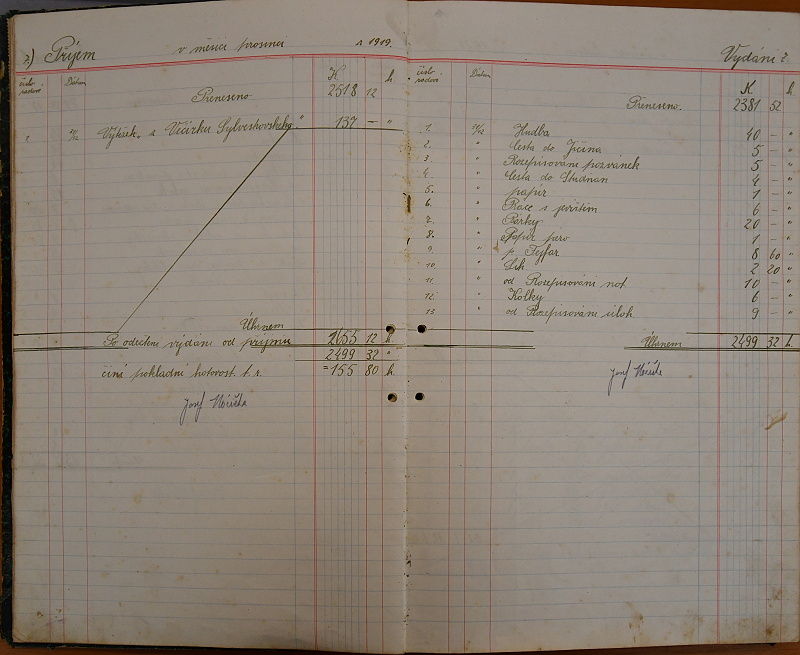 2) Příjem v měsíci prosinci r 1919.
číslo Datum K h
Přeneseno 2518 12
1. Výtěžek z Večírku Sylvestrovského 137 — "
Úhrnem 2655 12 h
Po odečtení vydání od příjmu 2499 32 "
činí pokladní hotovost t. r. = 155 80 h
Josef
Vydání 2.
číslo Datum K h
Přeneseno. 2381 52
1. 31/12 Hudba 40 — "
2. " Cesta do Jičína 5 — "
3. " Rozepisování pozvánek 5 — "
4 " Cesta do Studnan 4 — "
5. " papír 1 — "
6. " Práce s jevištěm 6 — "
7. " Párky 20 — "
8. " Papír pero 1 — "
9 " p. Fejfar 8 60 "
10. " Líh 2 20 "
11. " od Rozepisování not 10 — "
12. " Kolky 6 — "
13 " od Rozepisování úloh 9 — "
Úhrnem 2499 32 h.
Josef